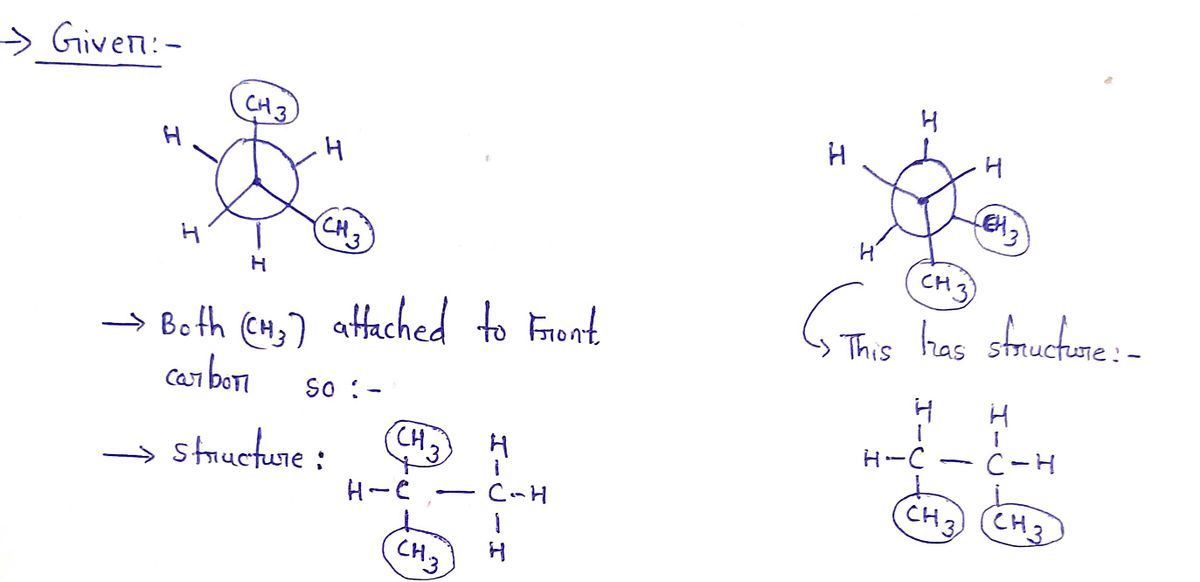 → Given:-
CH3
H H
H CH3
H
H
H H
H CH3
CH3
→ Both (CH3) attached to Front
carbon so :-
→ structure :
CH3 H
H-C — C-H
CH3 H
This has structure:-
H H
H-C — C-H
CH3 CH3